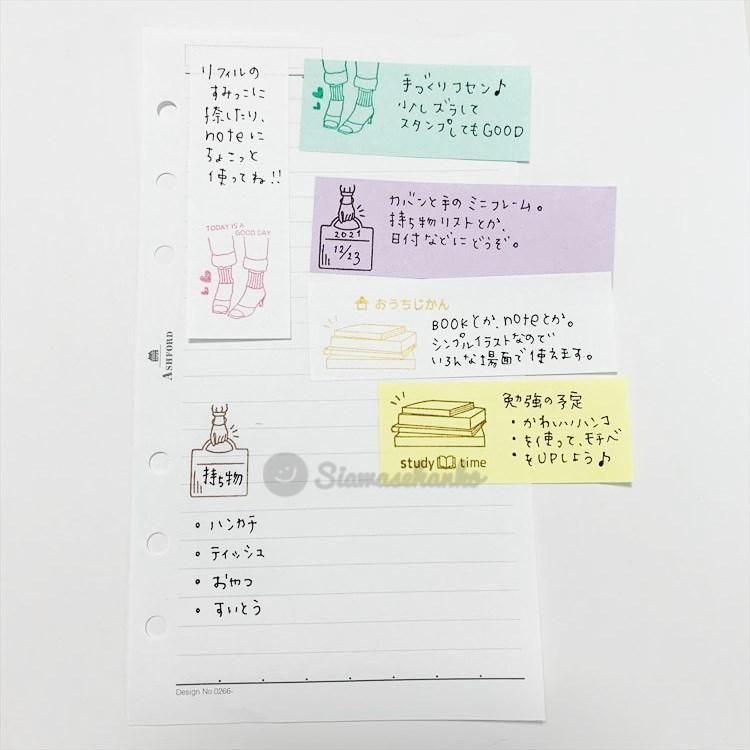 リフィルの
すみっこに
捺したり、
noteに
ちょこっと
使ってね!!
TODAY IS A
GOOD DAY
手づくりフセン♪
少しズラして
スタンプしてもGOOD
カバンと手のミニフレーム。
持ち物リストとか、
日付などにどうぞ。
2021
12/23
おうちじかん
BOOKとか、noteとか。
シンプルイラストなので
いろんな場面で使えます。
勉強の予定
・かわいいハンコ
・を使って、モチベ
・をUPしよう♪
study time
ASHFORD
持ち物
Siamasehanko
• ハンカチ
• ティッシュ
• おやつ
• すいとう
Design No.0266-